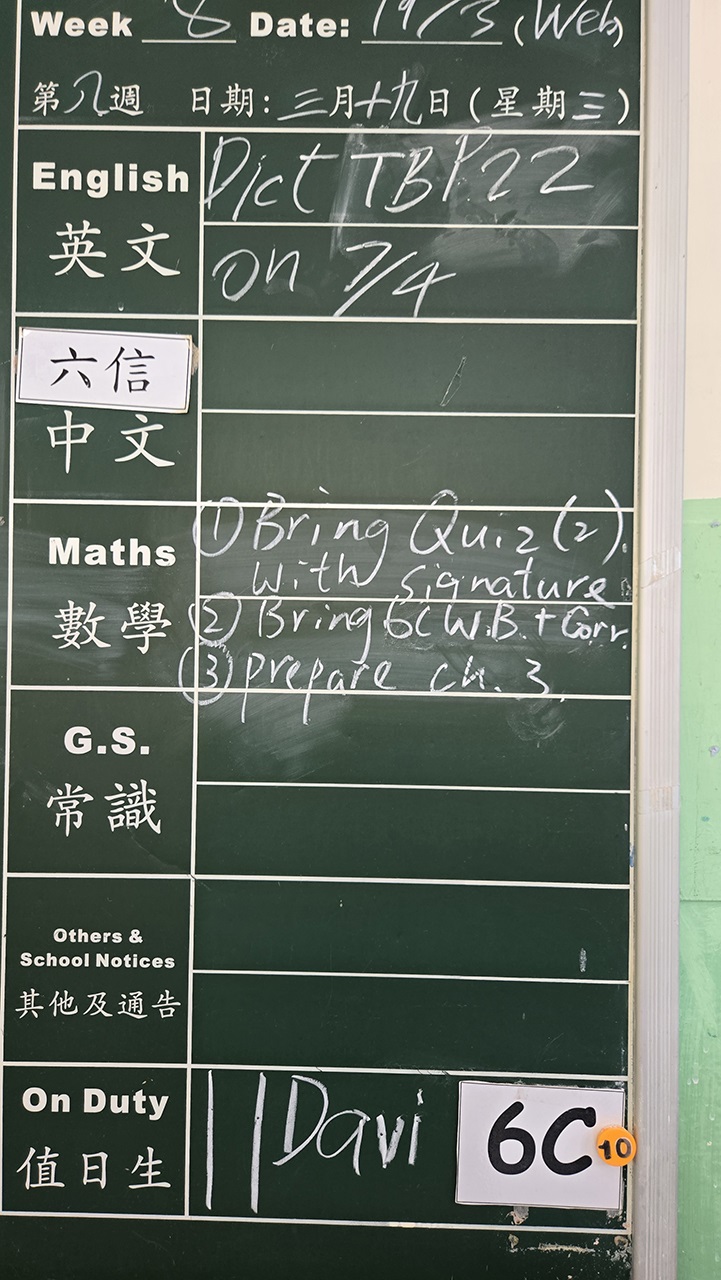 Week 8 Date: 19/3 (Web)
第八週 日期: 三月十九日(星期三)
English
英文
Dict TBP.22
on 7/4
六信
中文
Maths
數學
① Bring Quiz (2)
with signature
② Bring 6C W.B. + Corr.
③ prepare ch. 3.
G.S.
常識
Others &
School Notices
其他及通告
On Duty
值日生
11 Davi
6C
10